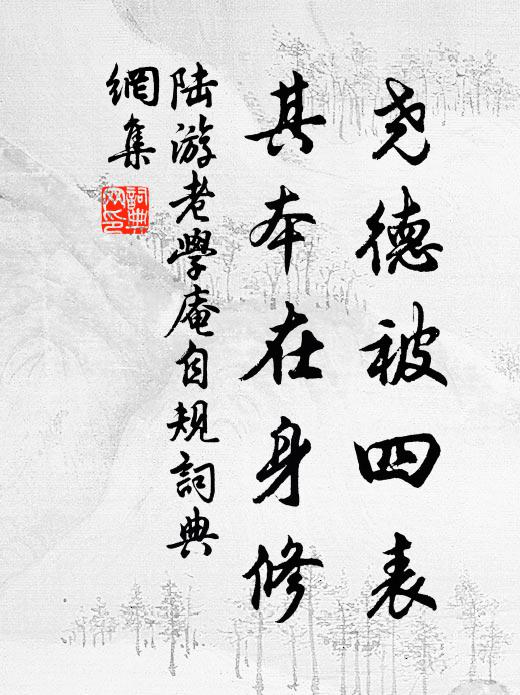 尧德被四表
其本在身修
陆游老學庵自规詞典
網集
詞典
网印